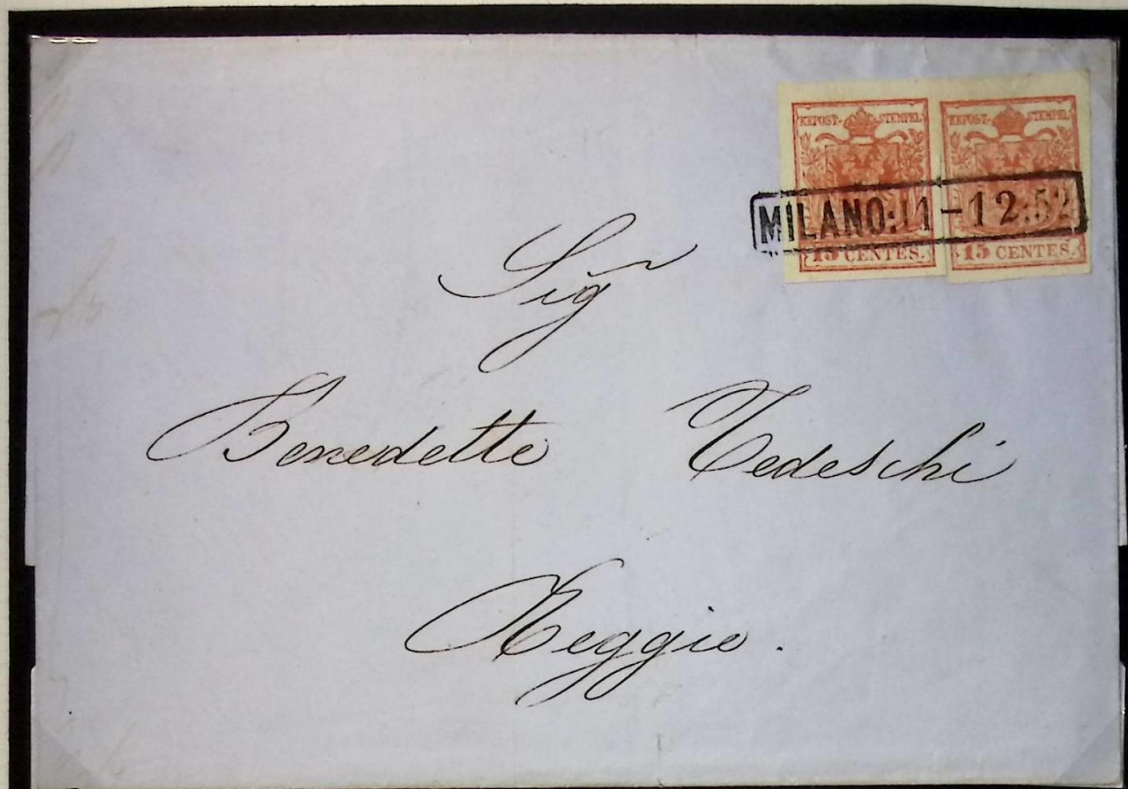 KKPOST-STEMPEL KKPOST-STEMPEL
MILANO:11-12:52
15 CENTES. 15 CENTES.
Sigr
Benedetto Tedeschi
Reggio.